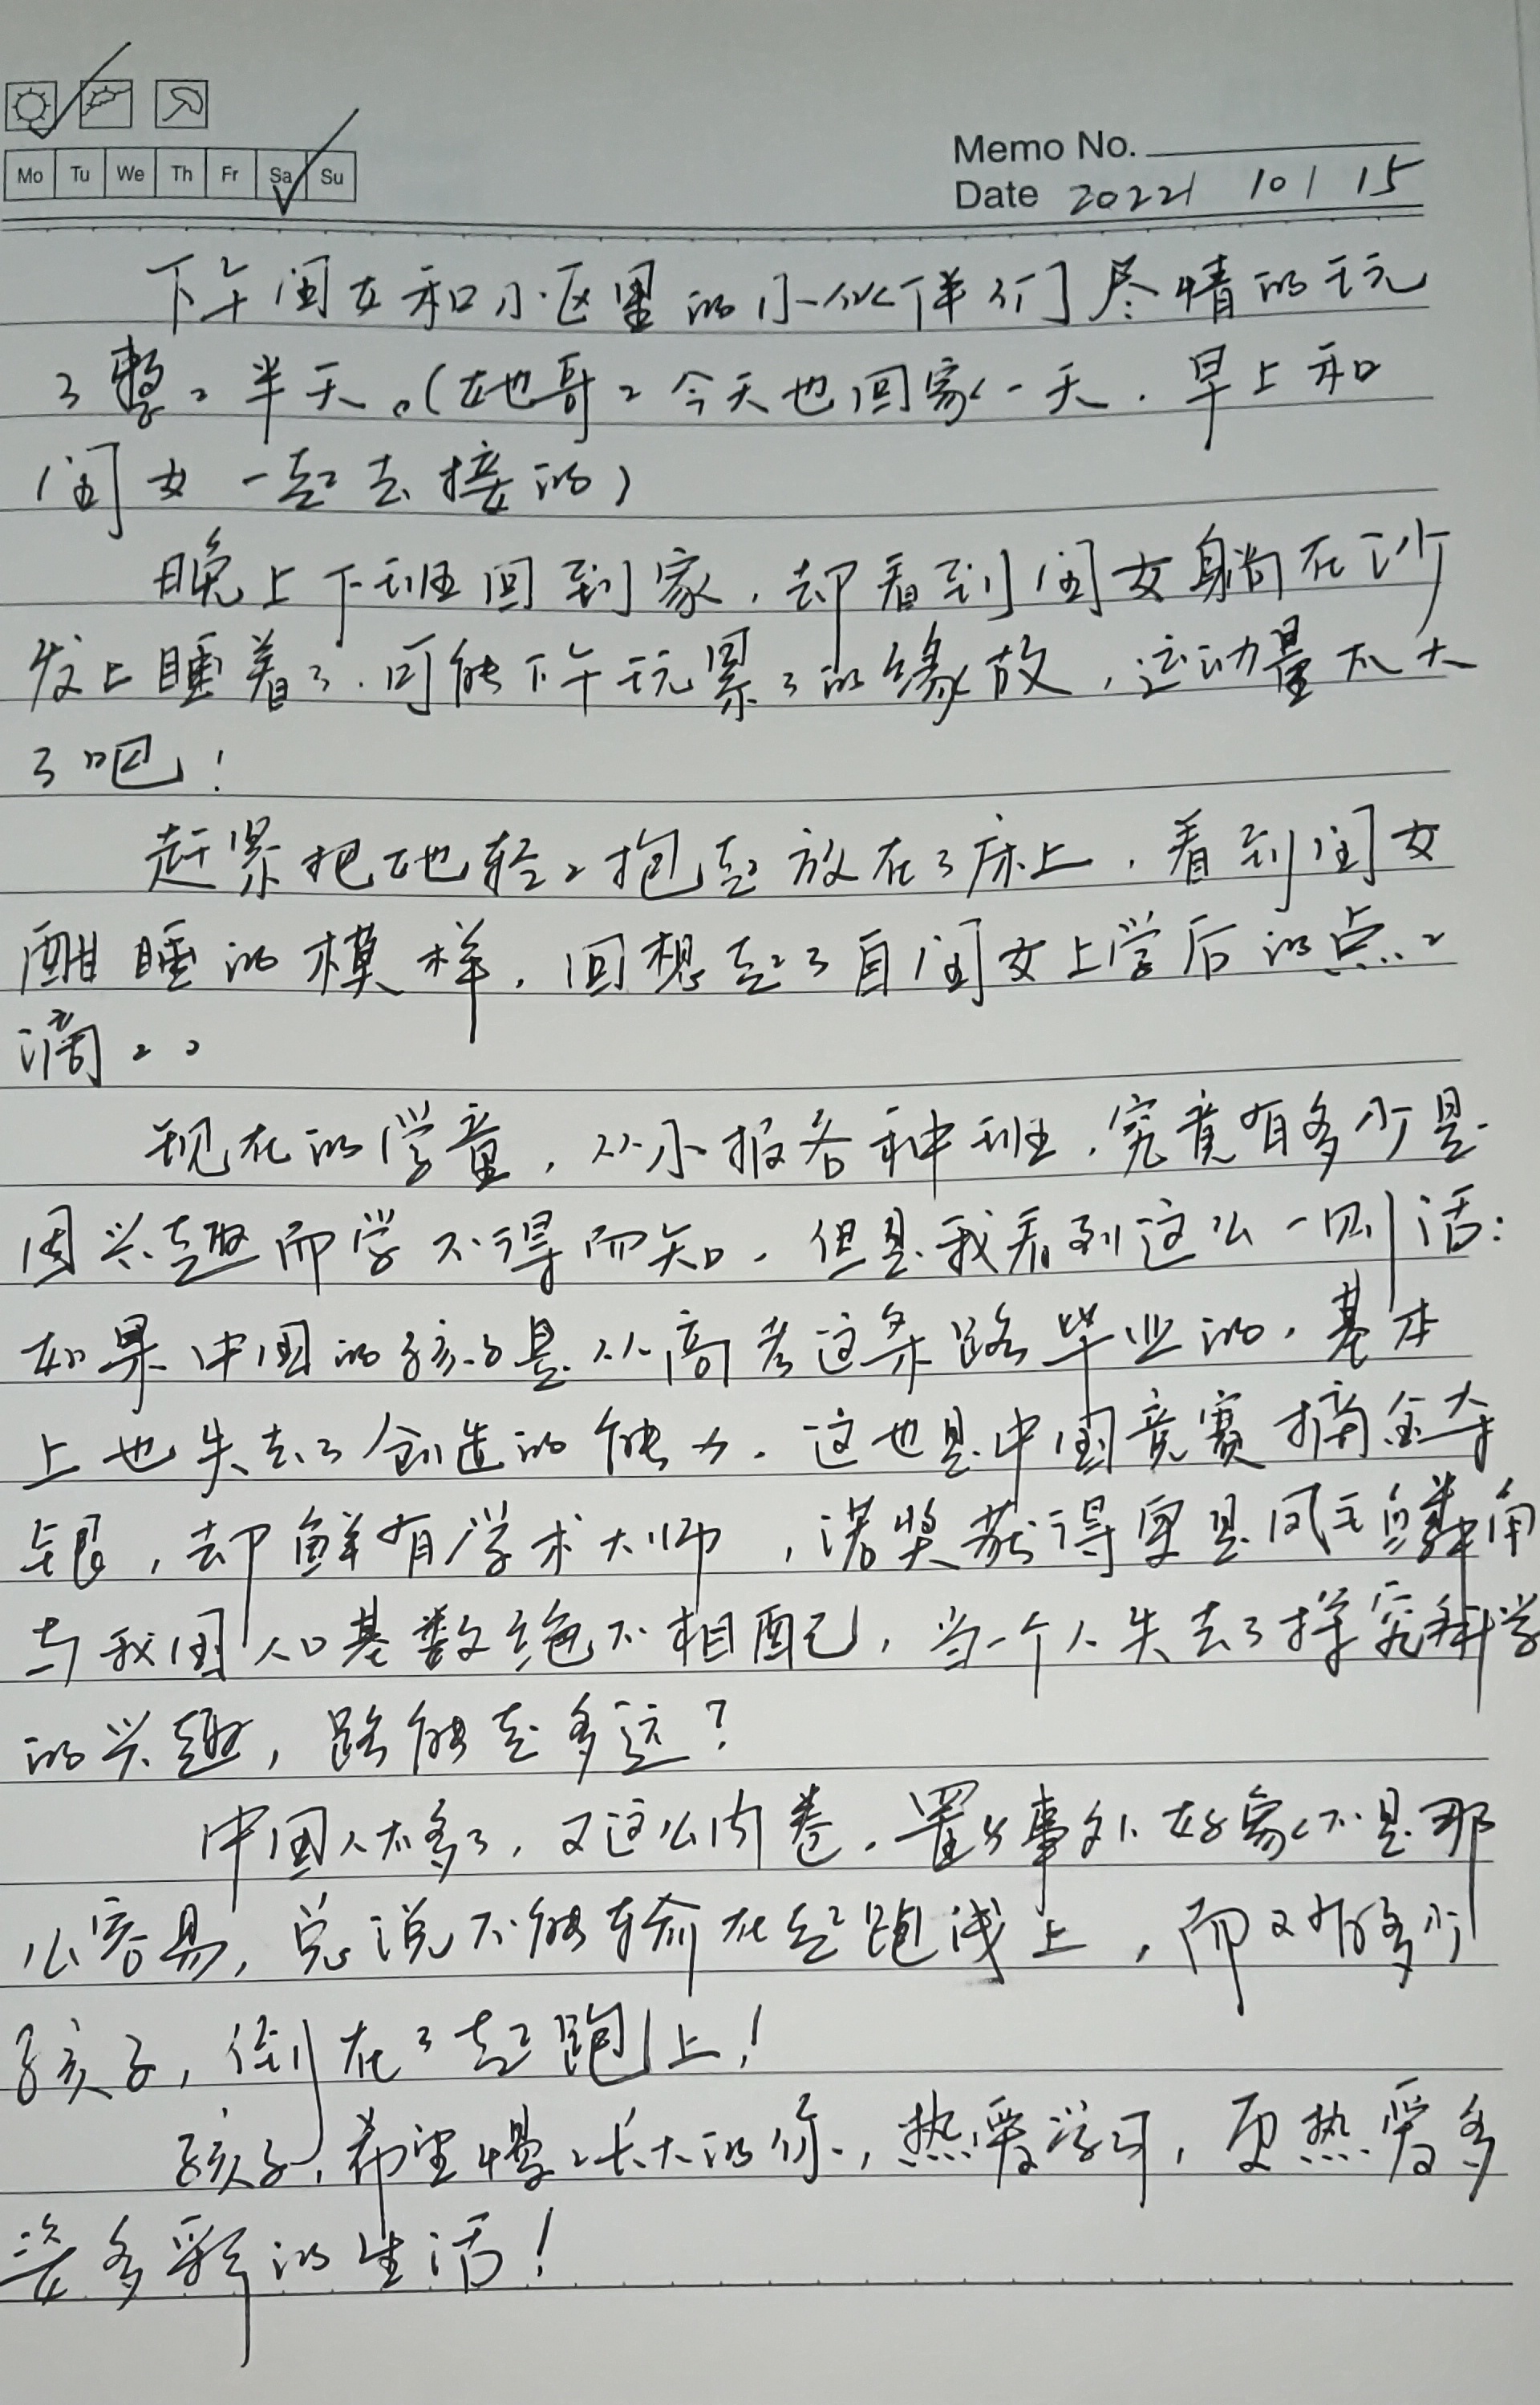 Mo Tu We Th Fr Sa Su
Memo No.
Date 2022/ 10/ 15
下午闺女和小区里的小伙伴们尽情的玩
了整々半天。(她哥々今天也回家一天,早上和
闺女一起去接的)
晚上下班回到家,却看到闺女躺在沙
发上睡着了,可能下午玩累了的缘故,运动量太大
了吧!
赶紧把她轻々抱起放在了床上,看到闺女
酣睡的模样,回想起了自闺女上学后的点々
滴々。
现在的学童,从小报各种班,究竟有多少是
因兴趣而学不得而知,但是我看到这么一则话:
如果中国的孩子是从高考这条路毕业的,基本
上也失去了创造的能力,这也是中国竞赛摘金夺
银,却鲜有学术大师,诺奖获得更是凤毛麟角
与我国人口基数绝不相配,当一个人失去了探究科学
的兴趣,路能走多远?
中国人太多了,又这么内卷,置身事外好象不是那
么容易,总说不能输在起跑线上,而又有多少
孩子,倒在了起跑上!
孩子,希望慢々长大的你,热爱学习,更热爱多
姿多彩的生活!